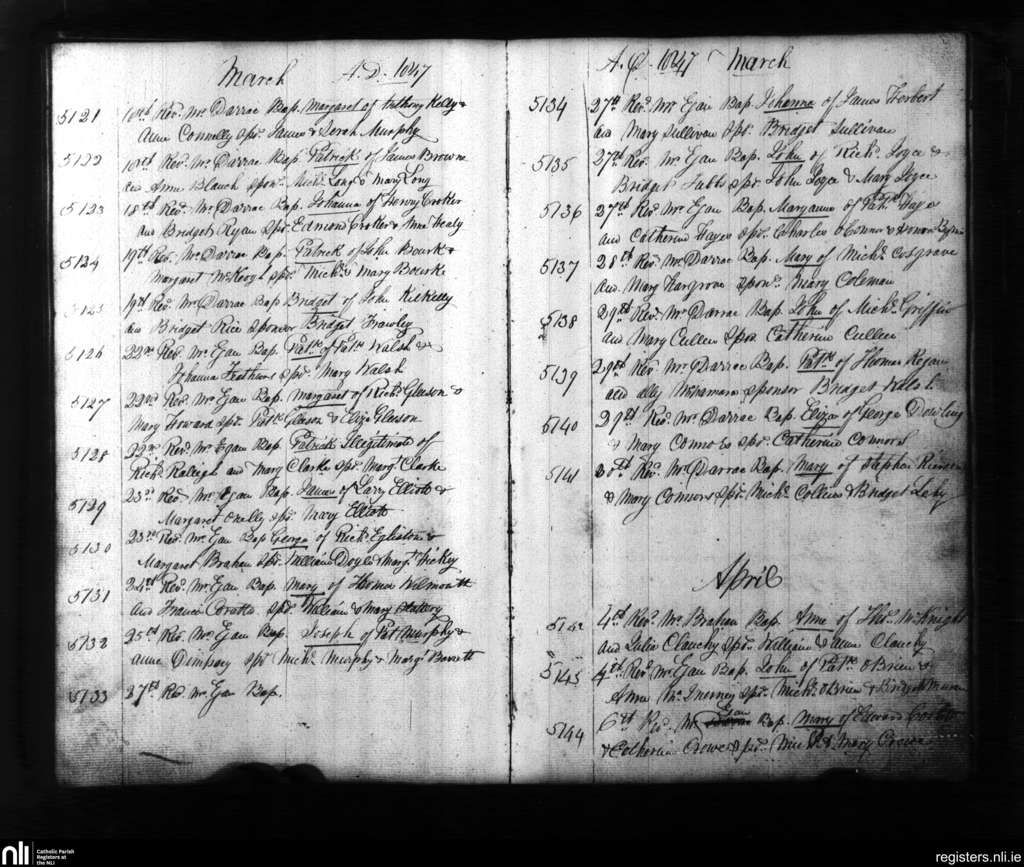 March A.D. 1847
5121 18th Revd. Mr. Darrac Bap. Margaret of Anthony Kelly &
Anne Connelly Spr. James & Sarah Murphy
5122 18th Revd. Mr. Darrac Bap. Patrick of James Browne
and Anne Blauch Sponr. Michl. Long & Mary Long
5123 18th Revd. Mr. Darrac Bap. Johanna of Henry Crotker
and Bridget Ryan Spr. Edmond Crotker & Anne Healy
5124 19th Rev. Mr. Darrac Bap. Patrick of John Bourk &
Margaret McKeog Spr. Michl. & Mary Bourke
5125 19th Revd. Mr. Darrac Bap Bridget of John Kickelly
and Bridget Rice Sponsor Bridget Frawley
5126 22nd Rev. Mr. Egan Bap. Patk. of Patk. Walsh &
Johanna Spr. Mary Walsh
5127 22nd Rev. Mr. Egan Bap. Margaret of Richd. Gleeson &
Mary Howard Spr. Patk. Gleeson & Eliza Gleeson
5128 22nd Revd. Mr. Egan Bap Patrick Illegitimate of
Richd. Raleigh and Mary Clarke Spr. Margt. Clarke
5129 23rd Revd Mr. Egan Bap. James of Larry Elliott &
Margaret Onelly Spr. Mary Elliott
5130 23rd Revd. Mr. Egan Bap George of Richd. Egliston &
Margaret Brahan Spr. William Doyle & Margt. Hickey
5131 24th Revd. Mr. Egan Bap. Mary of Thomas Wilmouth
and Frances Spr. William & Mary
5132 25th Rev. Mr. Egan Bap. Joseph of Pat Murphy &
Anne Dempsey Spr Michl. Murphy & Margt Barrett
5133 27th Revd Mr. Egan Bap.
A.D. 1847 March
5134 27th Revd. Mr. Egan Bap. Johanna of James Herbert
and Mary Sullivan Spr. Bridget Sullivan
5135 27th Rev. Mr. Egan Bap. John of Richd. Joyce &
Bridget Tubbs Spr John Joyce & Mary Joyce
5136 27th Revd Mr. Egan Bap. Maryanne of Patk. Hayes
and Catherine Hayes Spr. Charles O Connor & Honor Byrne
5137 28th Rev. Mr. Darrac Bap. Mary of Michl. Cosgrave
and Mary Hargrove Sponr. Mary Coleman
5138 29th Revd. Mr. Darrac Bap. John of Michl. Griffin
and Mary Cullen Spr. Catherine Cullen
5139 29th Rev Mr. Darrac Bap. Patk. of Thomas Hogan
and Ally McNamara Sponsor Bridget Walsh
5140 29th Revd. Mr. Darrac Bap Eliza of George Dowling
& Mary Connors Spr. Catherine Connors
5141 30th Revd. Mr. Darrac Bap. Mary of Stephen
& Mary Connors Spr. Michl. Collins & Bridget Lahy
April
5142 4th Revd. Mr. Brahan Bap. Anne of Thos. McKnight
and Julia Clauchy Spr. William & Anne Clauchy
5143 4th Revd. Mr. Egan Bap. John of Patk. O'Brien &
Anne McInerney Spr. Michl. O'Brien & Bridget
5144 6th Revd. Mr. Egan Bap. Mary of Edward Corbett
& Catherine Crowe Spr. & Mary Crowe
nli Catholic Parish
Registers at
the NLI
registers.nli.ie